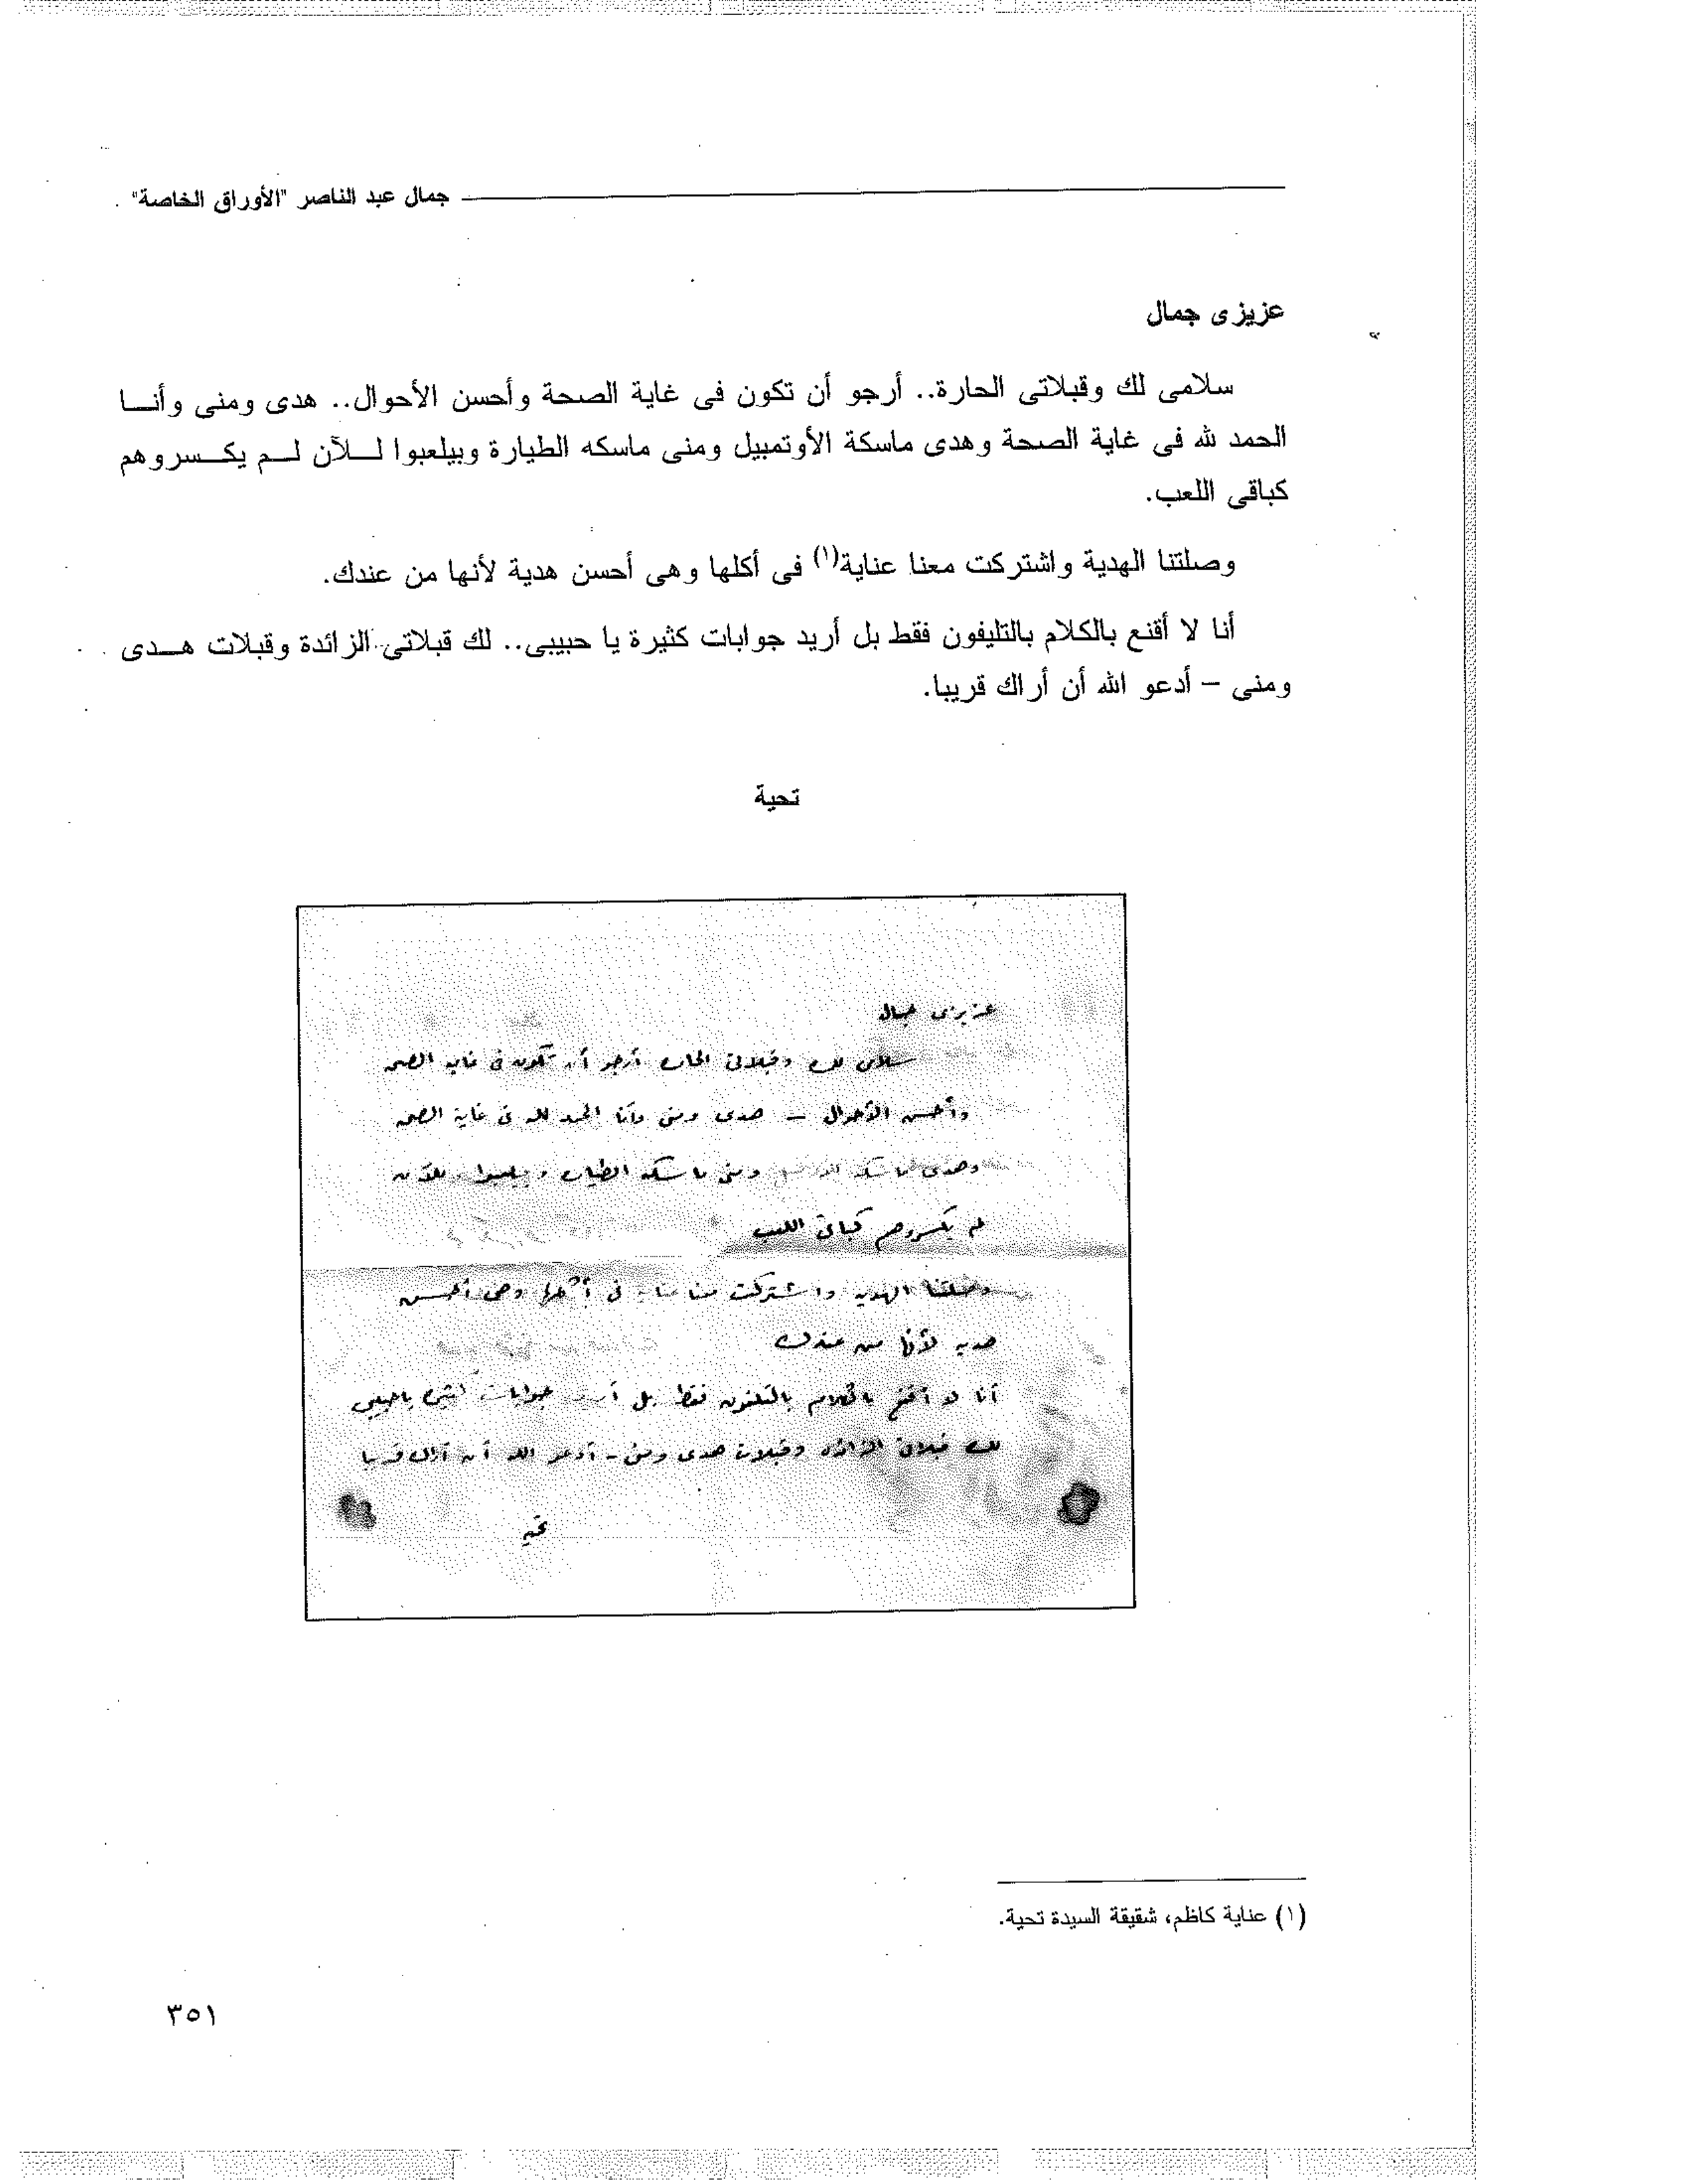 جمال عبد الناصر "الأوراق الخاصة"
عزيزى جمال
سلامى لك وقبلاتى الحارة.. أرجو أن تكون فى غاية الصحة وأحسن الأحوال.. هدى ومنى وأنـــا
الحمد لله فى غاية الصحة وهدى ماسكة الأوتمبيل ومنى ماسكه الطيارة وبيلعبوا لـــلآن لـــم يكـــسروهم
كباقى اللعب.
وصلتنا الهدية واشتركت معنا عناية(١) فى أكلها وهى أحسن هدية لأنها من عندك.
أنا لا أقنع بالكلام بالتليفون فقط بل أريد جوابات كثيرة يا حبيبى.. لك قبلاتى الزائدة وقبلات هـــدى
ومنى – أدعو الله أن أراك قريبا.
تحية
عزيزى جمال
سلامى لك وقبلاتى الحاره أرجو أن تكون فى غاية الصحه
وأحسن الأحوال – هدى ومنى وأنا الحمد لله فى غاية الصحه
وهدى ماسكه ومنى ماسكه الطياره وبيلعبوا للآن
لم يكسروهم كباقى اللعب
وصلتنا الهديه واشتركت معنا عنايه فى أكلها وهى أحسن
هديه لأنها من عندك
أنا لا أقنع بالكلام بالتلفون فقط بل أريد جوابات كثيره ياحبيبى
لك قبلاتى الزائده وقبلات هدى ومنى – أدعو الله أن أراك قريبا
تحيه
(١) عناية كاظم، شقيقة السيدة تحية.
٣٥١